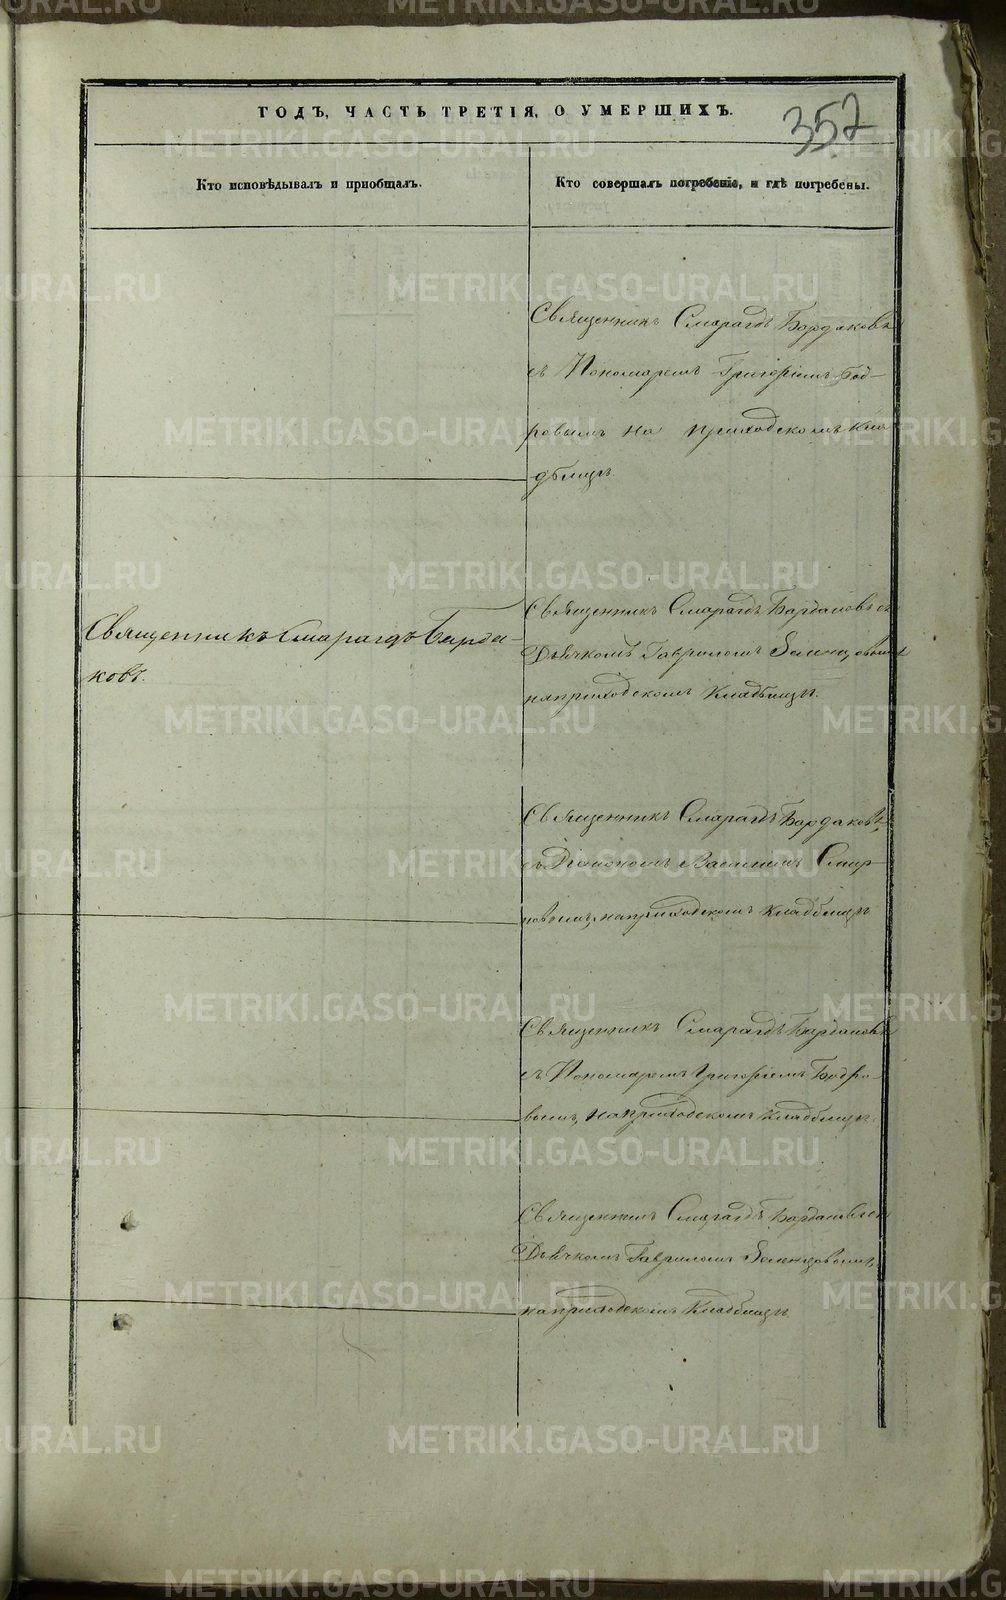 357
ГОДЪ, ЧАСТЬ ТРЕТІЯ, О УМЕРШИХЪ.
Кто исповѣдывалъ и приобщалъ.
Кто совершалъ погребеніе, и гдѣ погребены.
Священникъ Смарагдъ Бардаковъ
съ Пономаремъ Григоріемъ Бод-
ровымъ на приходскомъ кла
дбищѣ.
Священникъ Смарагдъ Барда-
ковъ.
Священникъ Смарагдъ Бардаковъ съ
Дьячкомъ Гавриломъ Зеленцовымъ
наприходскомъ Кладбищѣ.
Священникъ Смарагдъ Бардаковъ,
съ Діакономъ Василіемъ Смир
новымъ, наприходскомъ Кладбищѣ
Священникъ Смарагдъ Бардаковъ
съ Пономаремъ Григоріемъ Бодро-
вымъ, наприходскомъ Кладбищѣ.
Священникъ Смарагдъ Бардаковъ съ
Дьячкомъ Гавриломъ Зеленцовымъ,
наприходскомъ Кладбищѣ.
METRIKI.GASO-URAL.RU